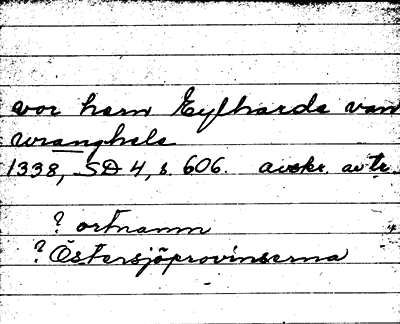 vor hern Eylharde van
wranghele
1338, SD 4, s. 606. avskr. avtr.
? ortnamn
? Östersjöprovinserna